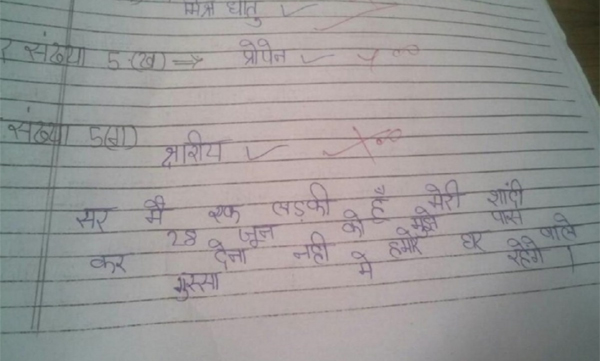 मिश्र धातु
संख्या 5 (ख) ⇒ प्रोपेन
संख्या 5(ग)
क्षारीय
सर मै एक लड़की हूँ मेरी शादी
28 जून को है मुझे पास
कर देना नही हमारे घर वाले
गुस्सा मे रहेंगे।